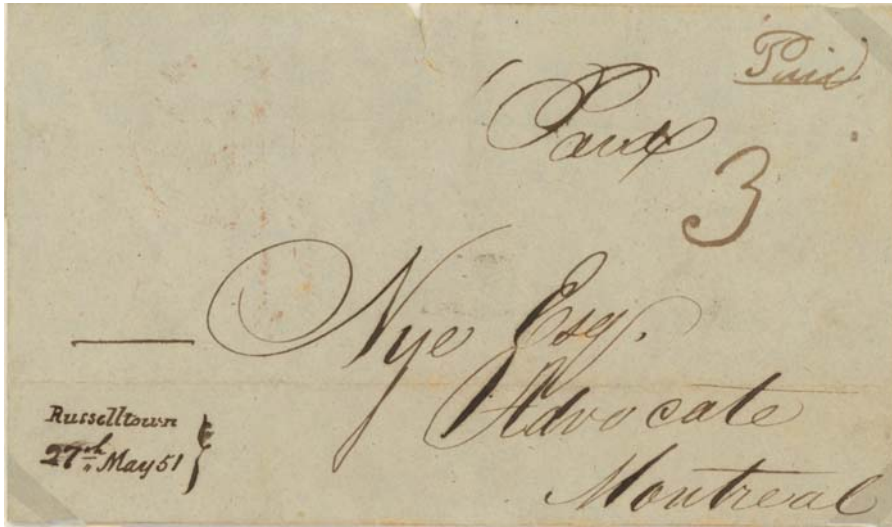 Paid
Paid
3
Nye Esq.
Advocate
Montreal
Russelltown
27th May 51